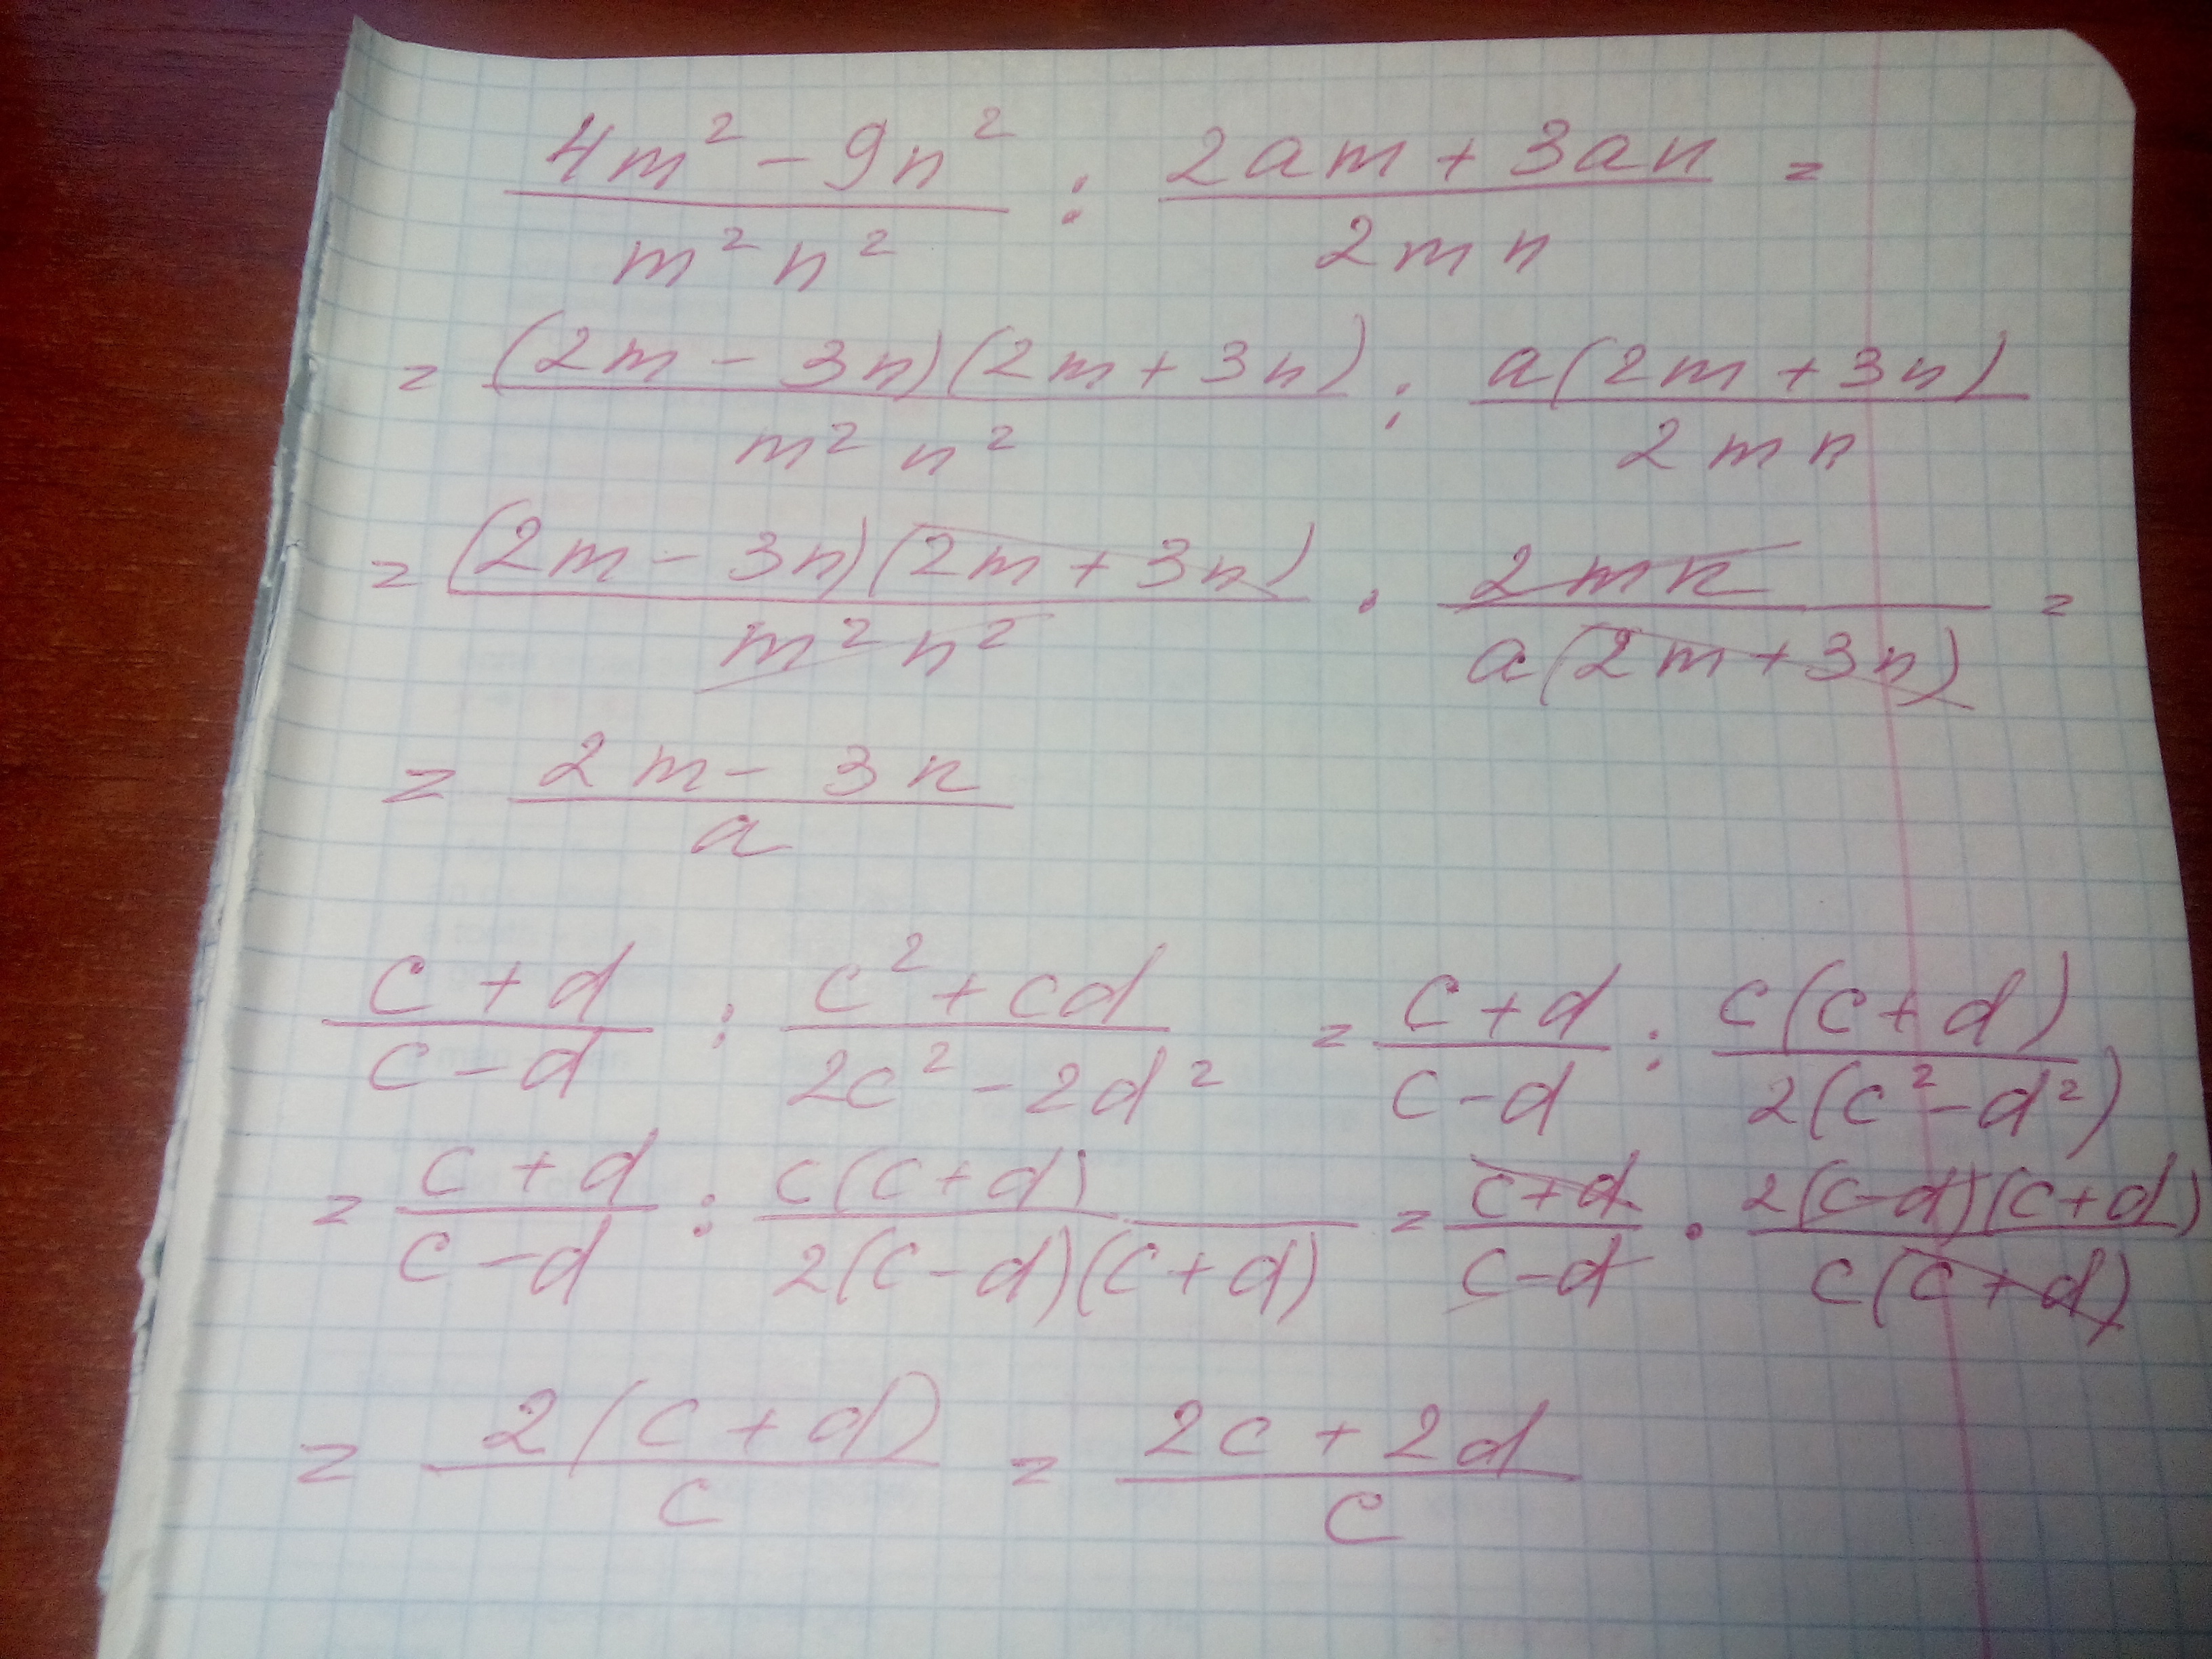 4m² - 9n² / m² n² : 2am + 3an / 2mn =
= (2m - 3n)(2m + 3n) / m² n² : a(2m + 3n) / 2mn
= (2m - 3n)(2m + 3n) / m² n² · 2mn / a(2m + 3n) =
= 2m - 3n / a
c + d / c - d : c² + cd / 2c² - 2d² = c + d / c - d : c(c + d) / 2(c² - d²)
= c + d / c - d : c(c + d) / 2(c - d)(c + d) = c + d / c - d · 2(c - d)(c + d) / c(c + d)
= 2(c + d) / c = 2c + 2d / c